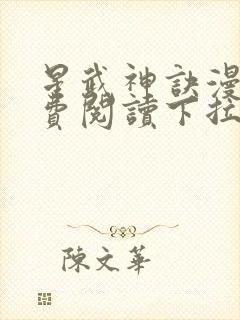 星武神訣漫
費閱讀下拉
陳文華